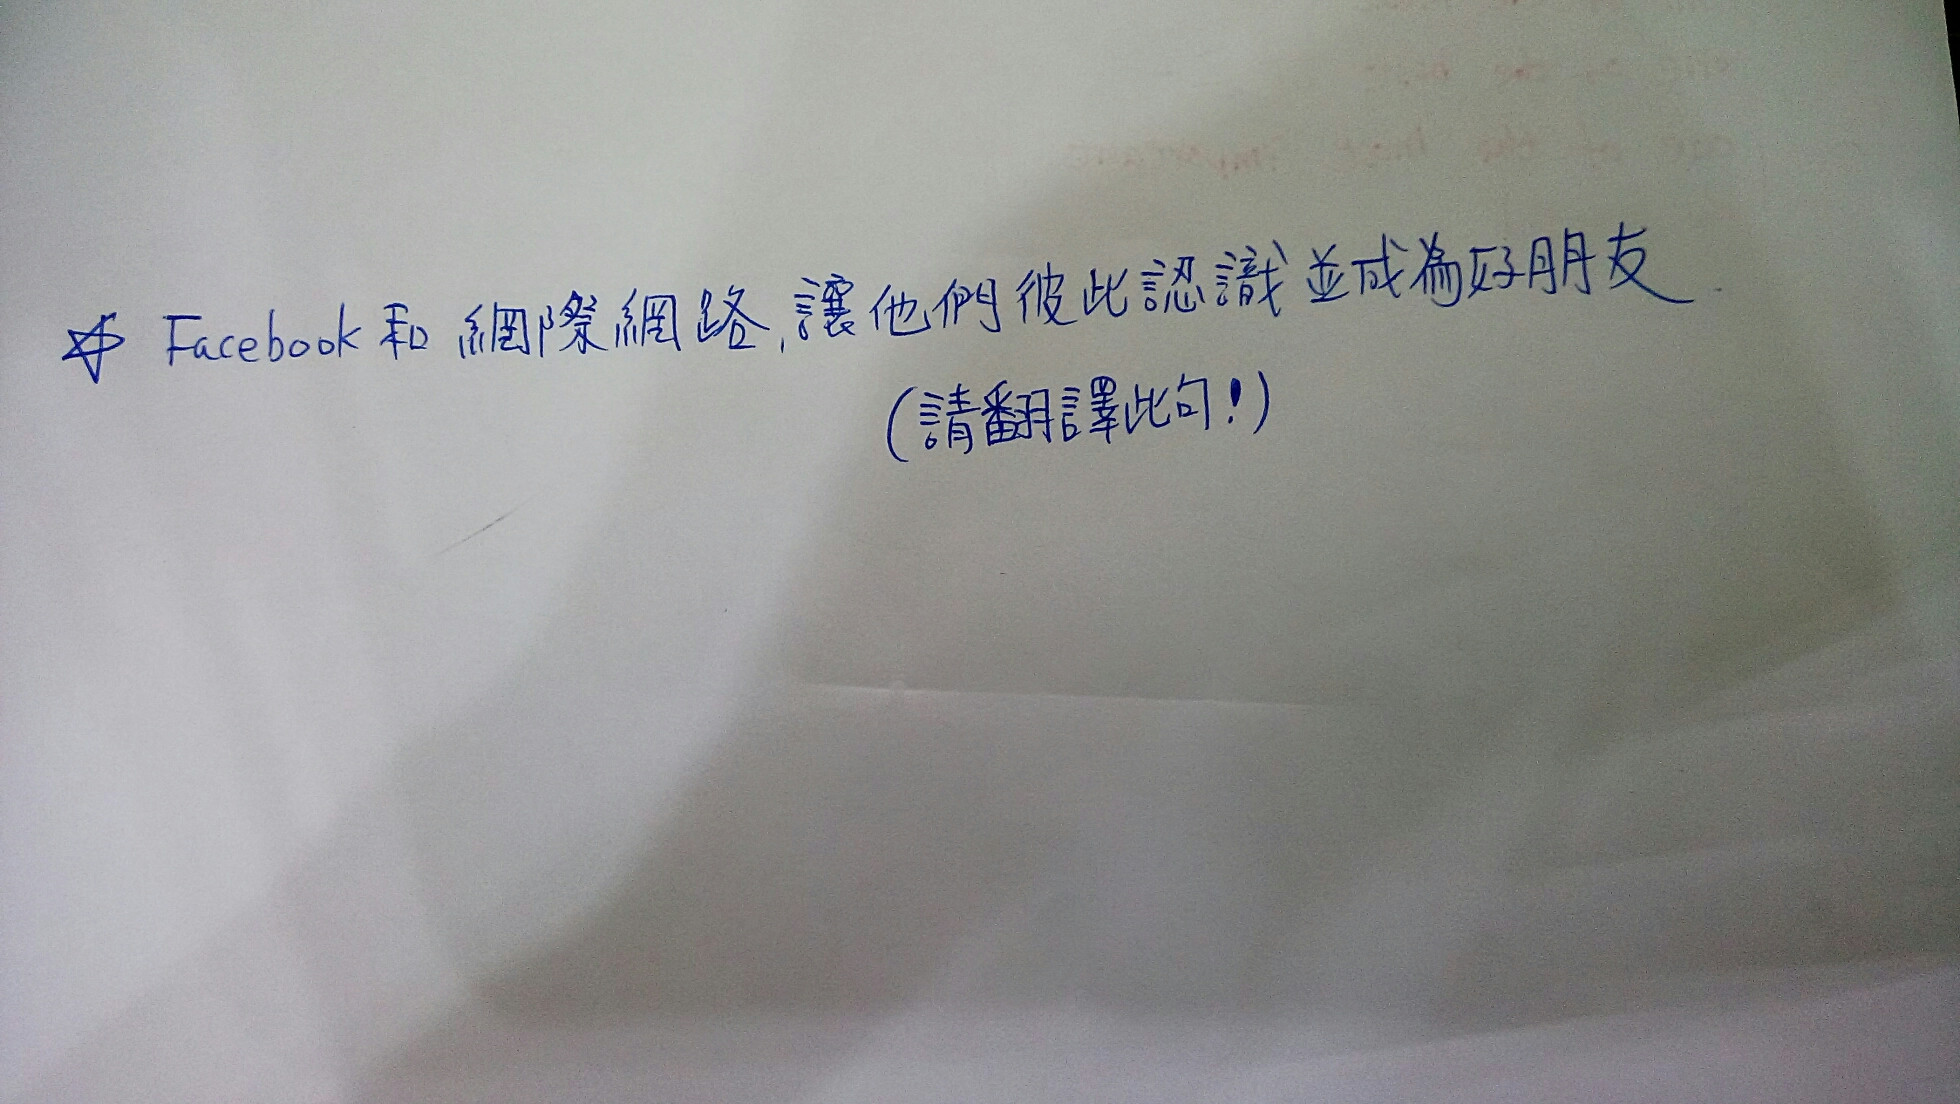 ☆ Facebook和網際網路,讓他們彼此認識並成為好朋友.
(請翻譯此句!)